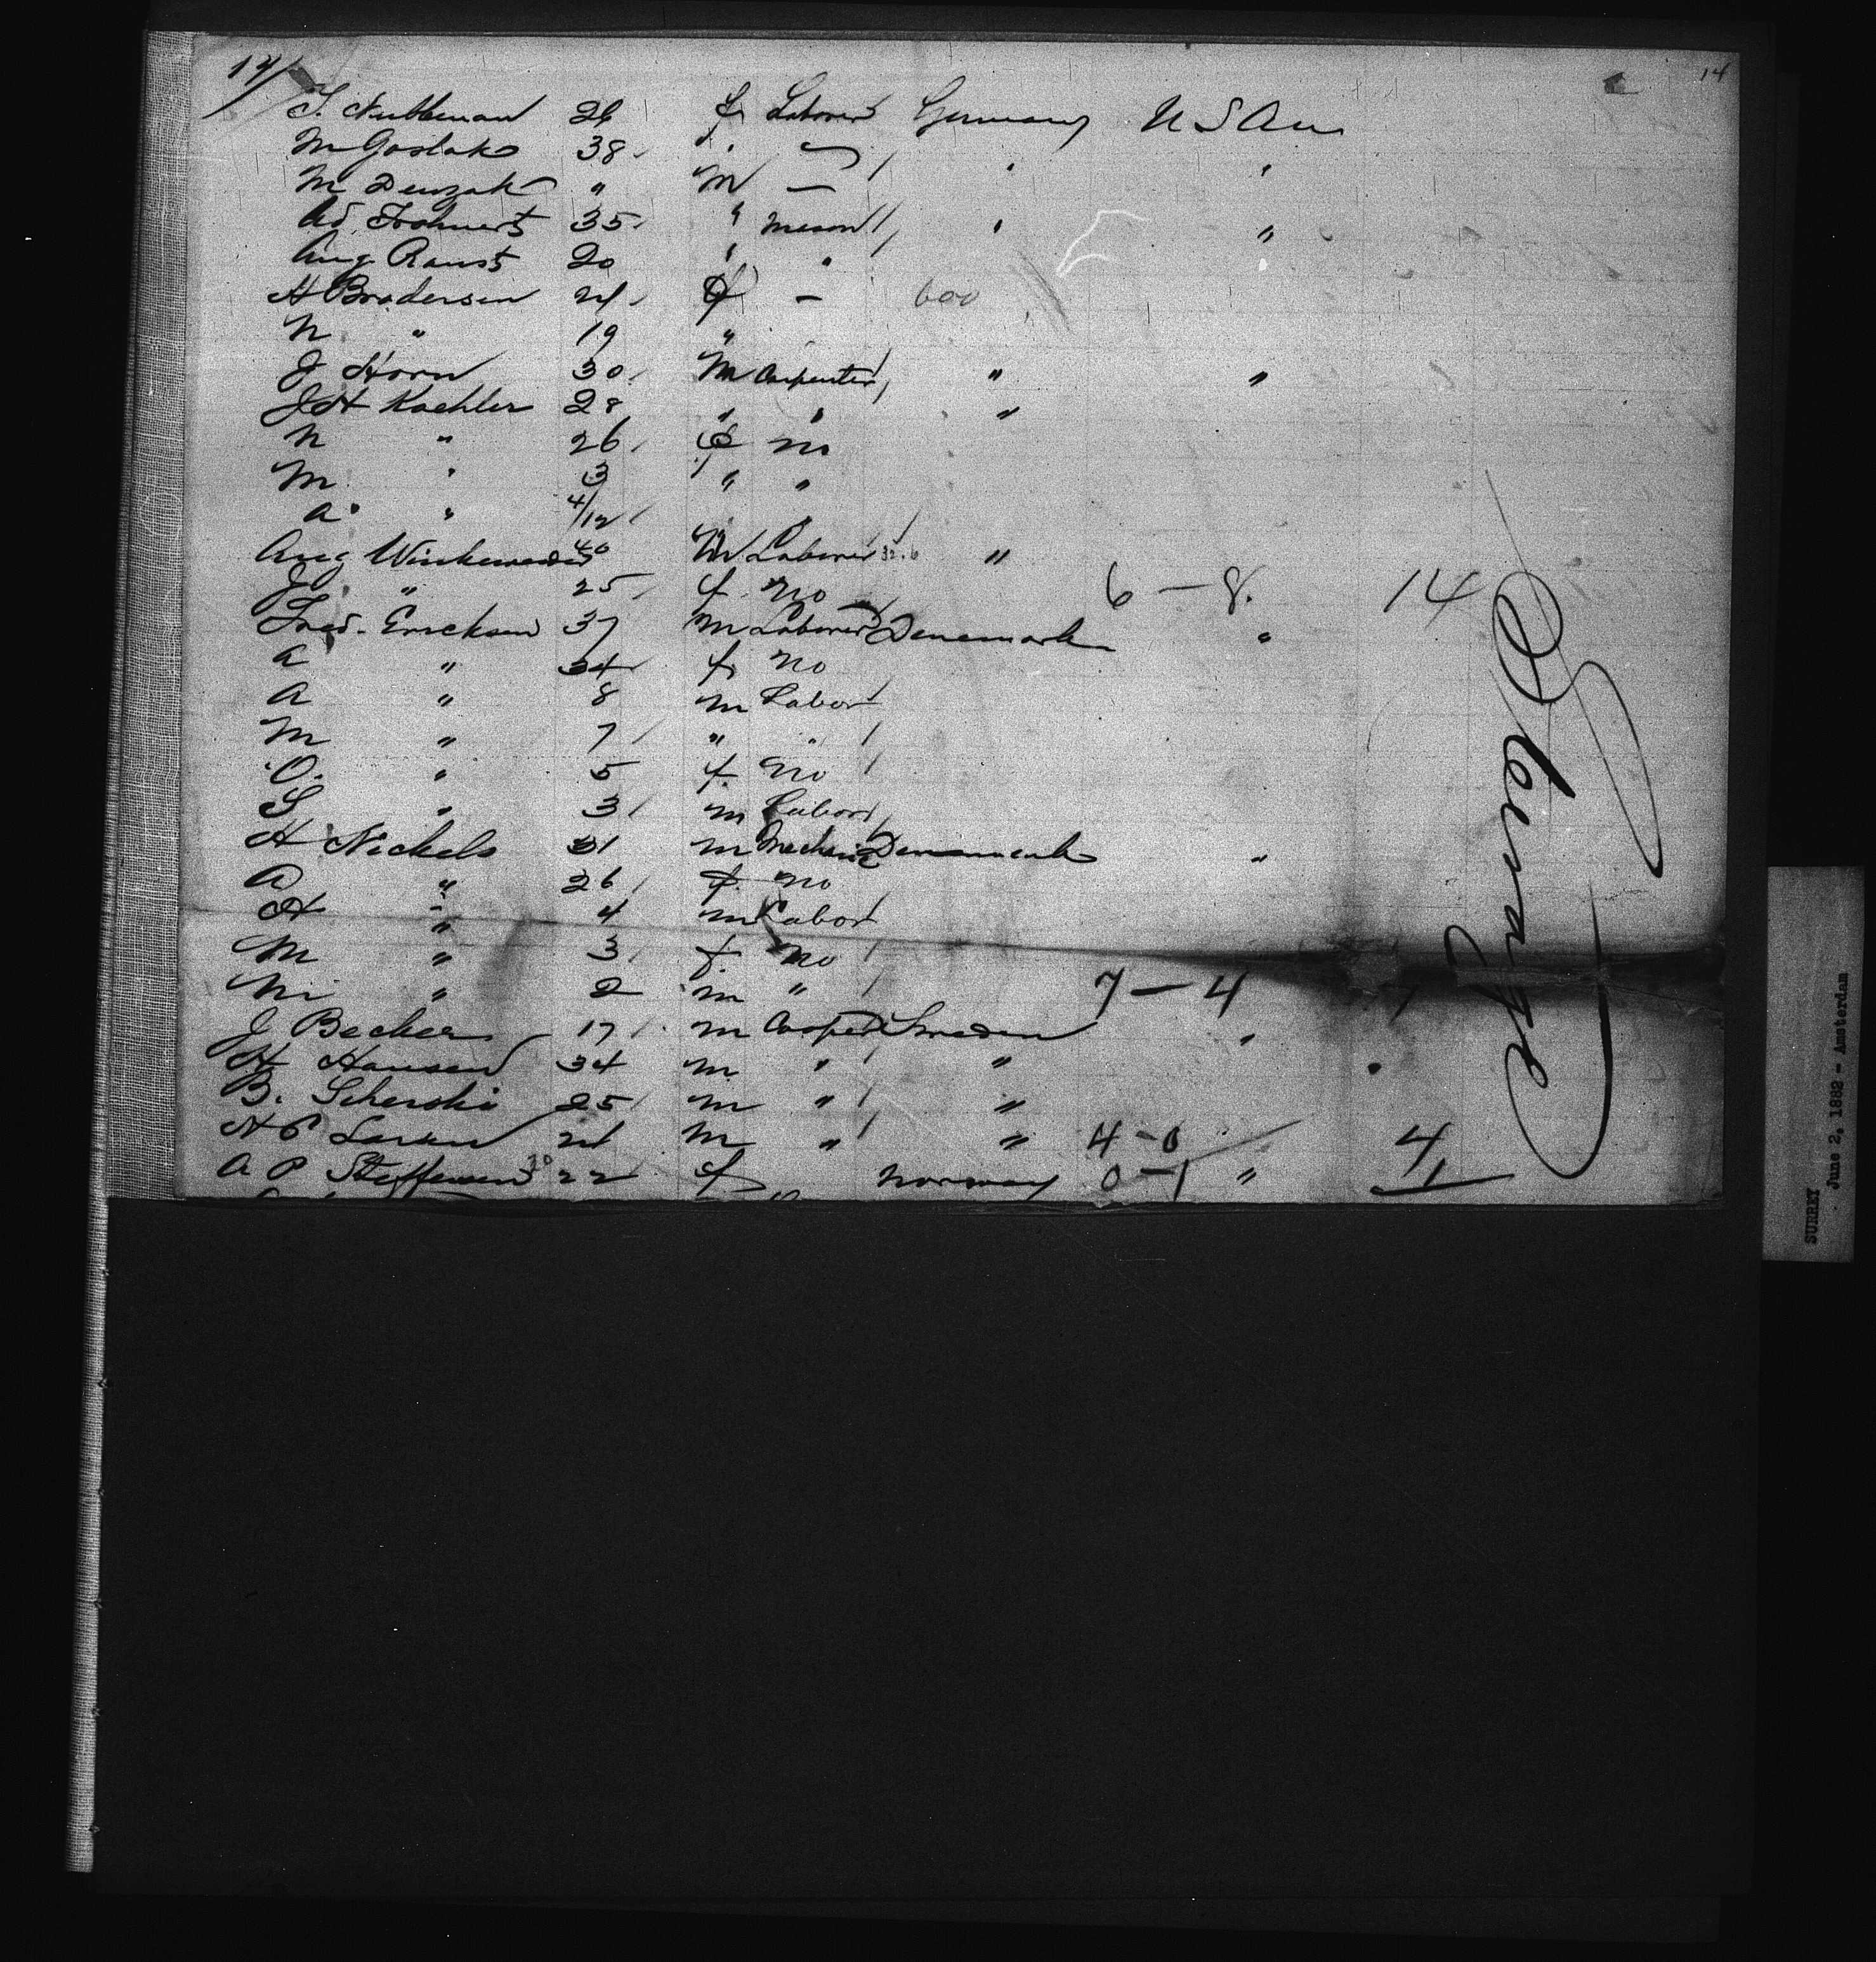 14/ 14
Nubbeman 26 f Laborer Germany U S Am
M Goslak 38 " — " "
M 〃 M —
Ad. 35 " mason " "
Aug. Raust 20 " "
H Brodersen 24 f — 600
N " 19 "
J Horn 30 M Carpenter " "
J H Koehler 28 " " "
N " 26 f no
M " 3 " "
A " 4/12 "
Aug 40 M Laborer "
J " 25 f no 6 – 8. 14
Fred. Ericksen 37 M Laborer Denemark "
A " 34 f no
A " 8 m Labor
M " 7 " "
O. " 5 f no
S " 3 m Labor
H Nickels 31 m Mechanic Denemark "
A " 26 f no
H " 4 m Labor
M " 3 f no
M " 2 m " 7 – 4
J Becker 17 m Cooper Sweden "
H Hansen 34 m " "
B. Scherski 25 m " "
H P Larsen 24 M " " 4 – 0 4
A P Steffensen 22 f Norway 0 – 1 " 1
Steerage
SURREY
June 2, 1882 - Amsterdam